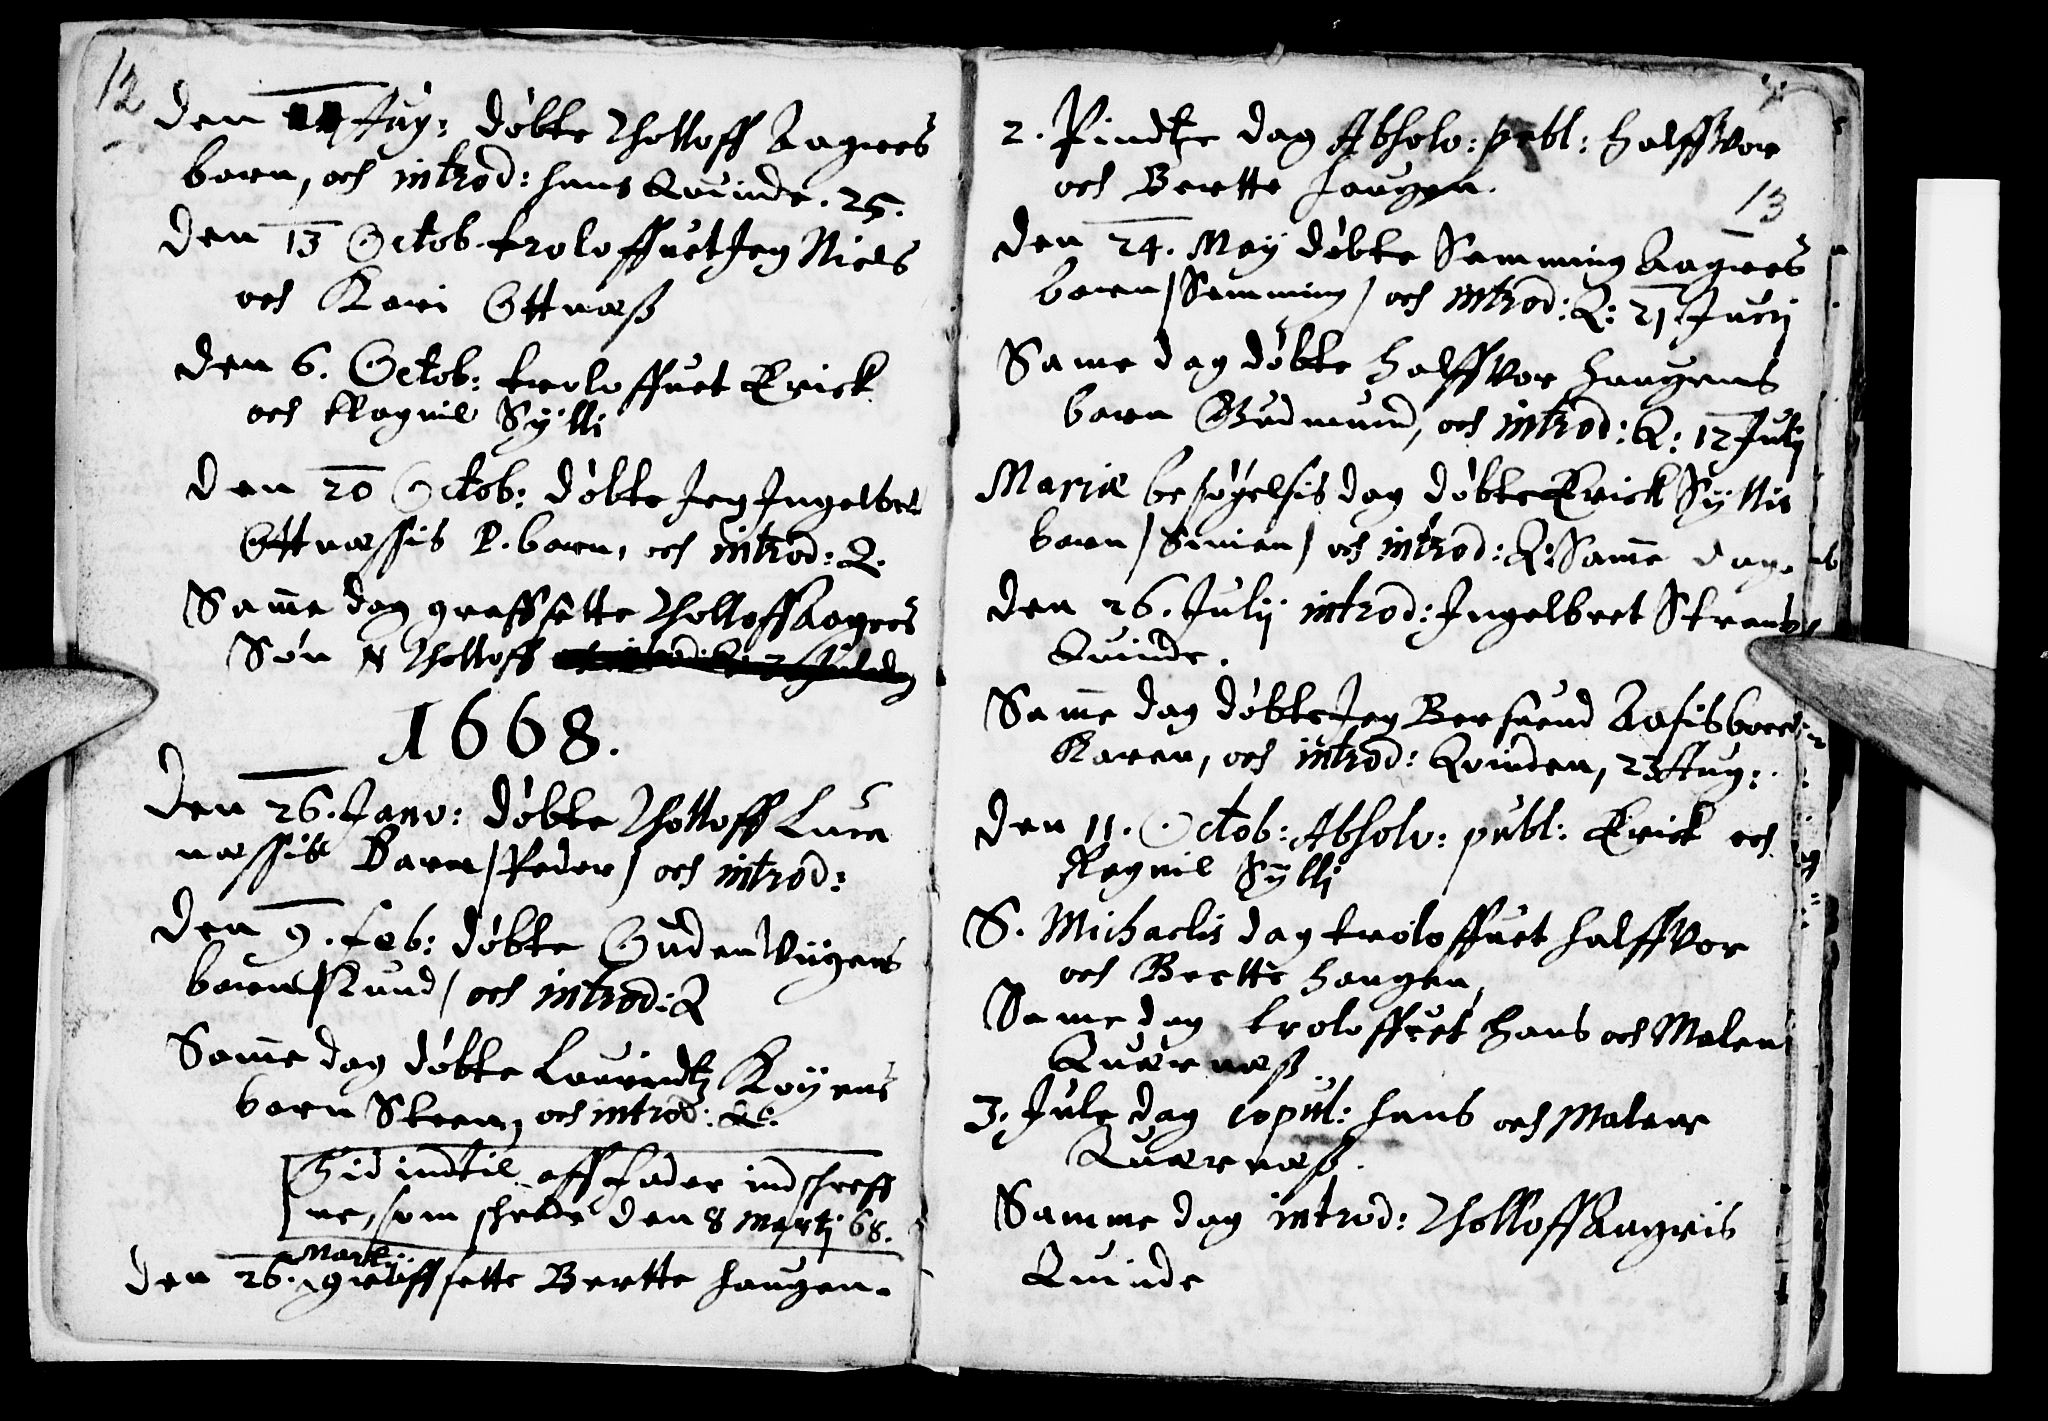 12
den 11 Aug: døbte Tholloff Aagres
barn, och introd: hans Quinde. 25.
den 13 Octob. troloffuet Jeg Niels
och Kari Ottnæß
den 6. Octob: troloffuet Erick
och Ragnil Sylli
den 20 Octob: døbte Jeg Ingelbret
Ottnæssis P. barn, och introd: Q.
Same dag graffsette Tholloff Aagres
Søn N Tholloff
1668.
den 26. Janv: døbte Tholloff Lura
næssis Barn / Peder / och introd:
den 9. Feb: døbte Guden Vugens
barn / Knud / och introd: Q
Same dag døbte Lauridtz Køyens
barn Steen, och introd: Q:
Hid indtil aff Fader indschreff
ne, som schede den 8 Martij 68.
den 26. Martij graffsette Bertte Haugen.
2. Pindtze dag Absolv: publ: Halffvor
och Bertte Haugen.
13
den 24. May døbte Semming Aagres
barn / Semming / och introd: Q: 21. Junij
Same dag døbte Halffvor Haugens
barn Gudmund, och introd: Q: 12 Julij
Mariæ besøgelsis dag døbte Erick Syllis
barn / Simen / och introd: Q: Same dag.
den 26. Julij introd: Ingelbret Strands
Quinde.
Same dag døbte Jeg Bersuend Aasis barn
Karen, och introd: Qvinden, 23 Aug:.
den 11. Octob: Absolv: publ: Erick och
Ragnil Sylli
S. Michaelis dag troloffuet Halffvor
och Bertte Haugen,
Same dag troloffuet Hans och Malen
Quærnæß.
3. Jule dag copul: Hans och Malene
Quærnæß.
Samme dag introd: Tholloff Aagris
Quinde